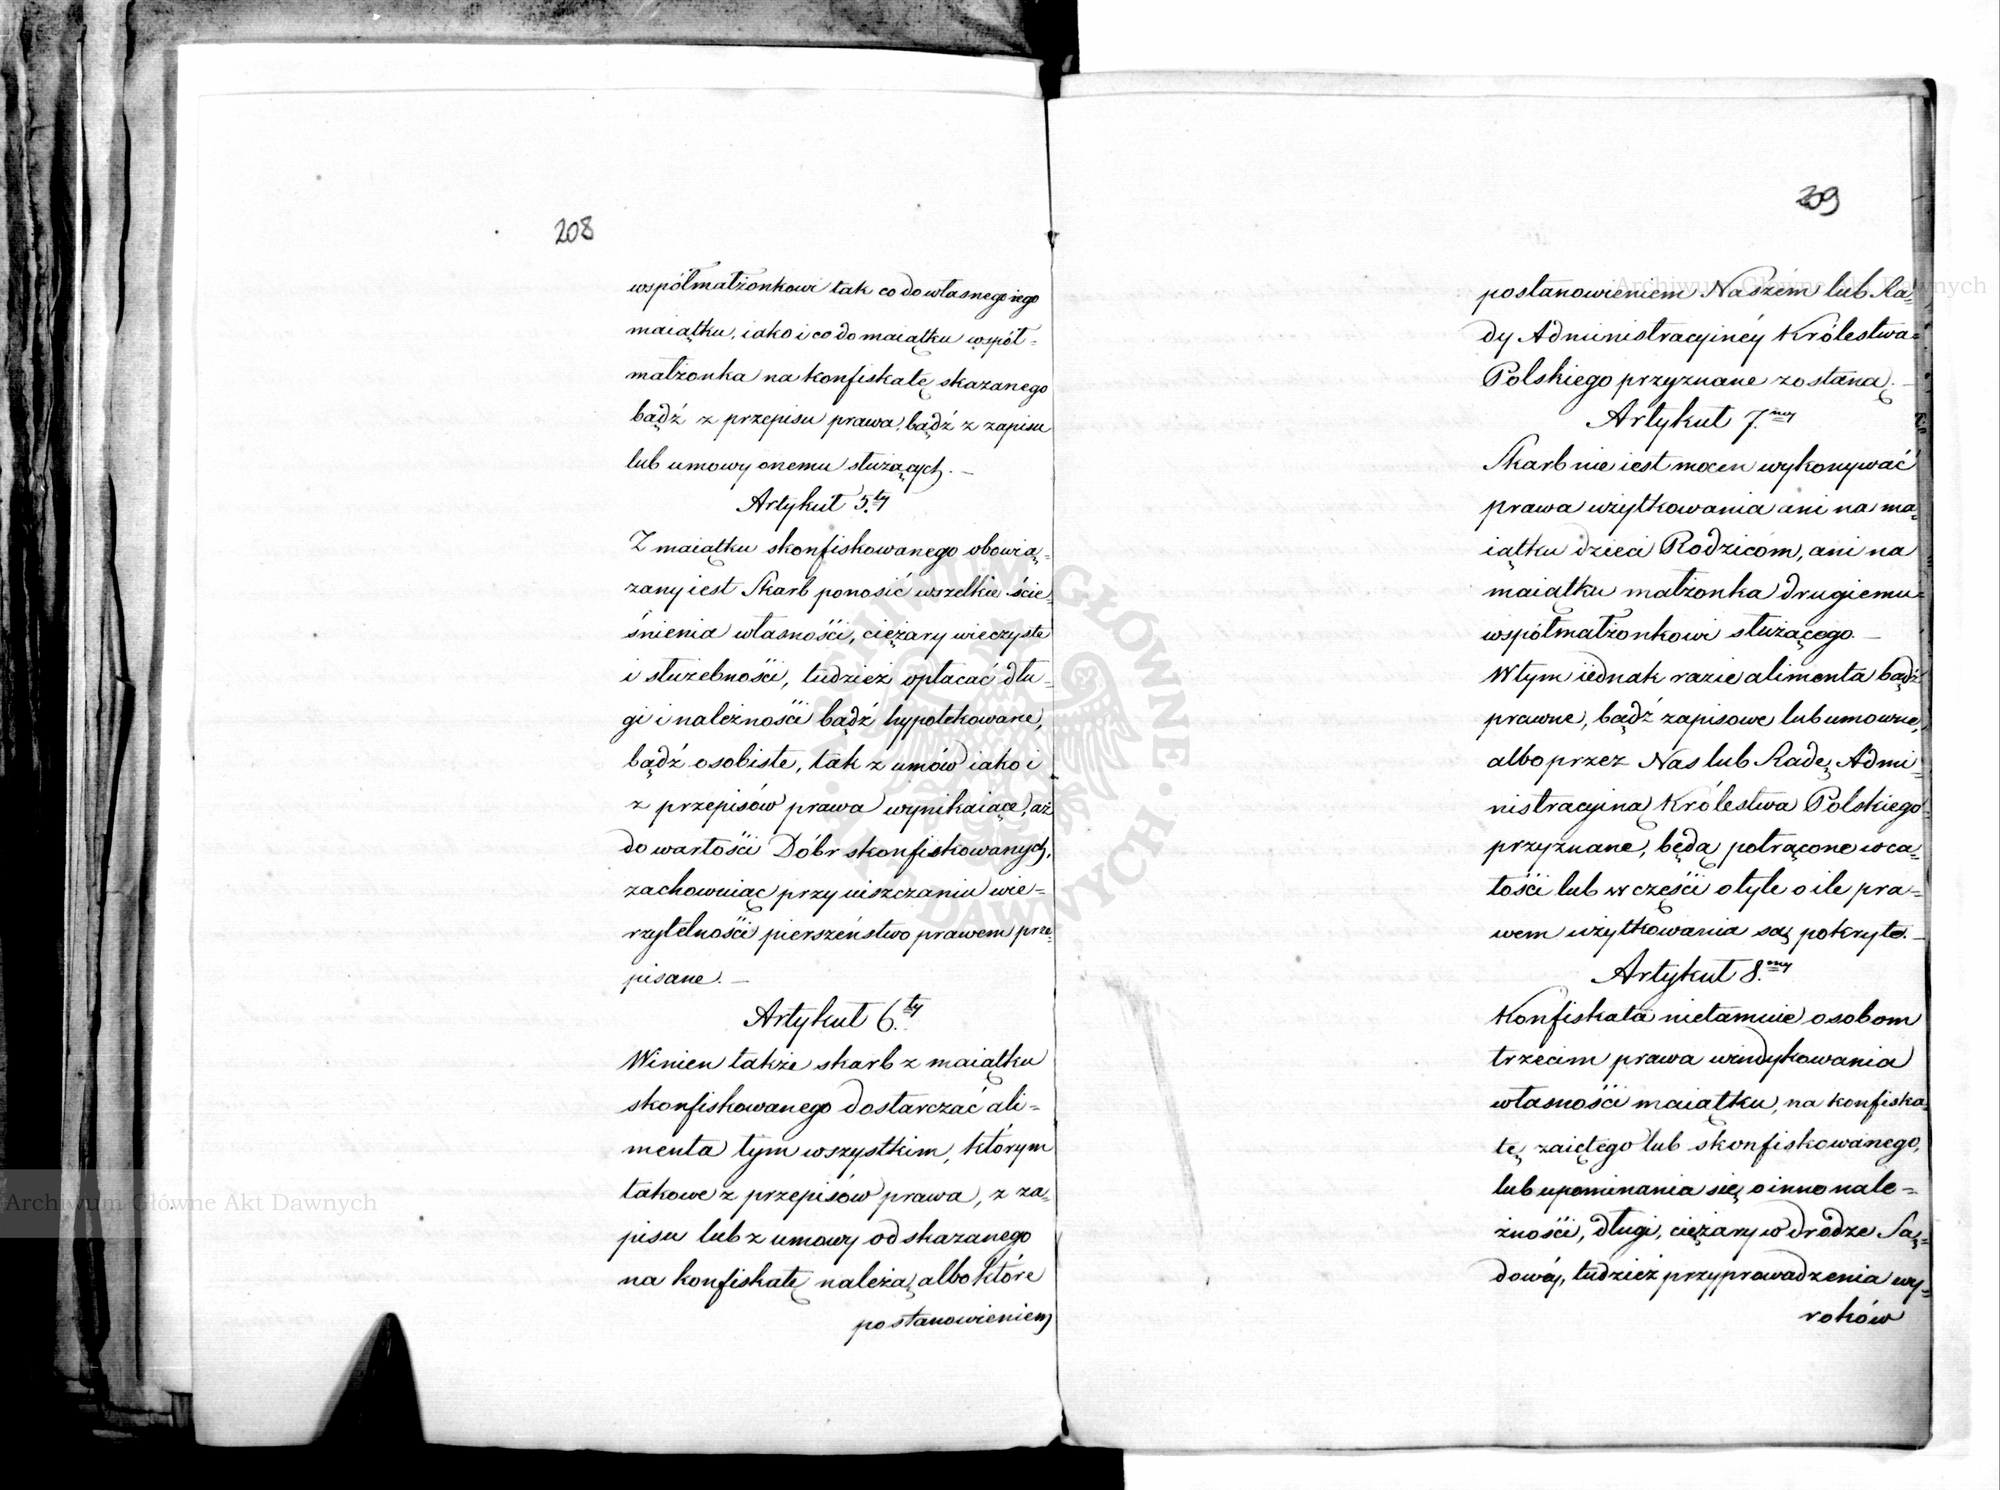 208
współmałżonkowi tak co do własnego iego
maiątku, iako i co do maiątku współ=
małżonka na konfiskatę skazanego
bądź z przepisu prawa, bądź z zapisu
lub umowy onemu służących. —
Artykuł 5.ty
Z maiątku skonfiskowanego obowią=
zany iest Skarb ponosić wszelkie ście=
śnienia własności, ciężary wieczyste
i służebności, tudzież opłacać dłu=
gi i należności bądź hypotekowane,
bądź osobiste, tak z umów iako i
z przepisów prawa wynikaiące, aż
do wartości Dóbr skonfiskowanych,
zachowuiąc przy uiszczaniu wie=
rzytelności pierszeństwo prawem prze=
pisane. —
Artykuł 6.ty
Winien także skarb z maiątku
skonfiskowanego dostarczać ali=
menta tym wszystkim, którym
takowe z przepisów prawa, z za=
pisu lub z umowy od skazanego
na konfiskatę należą, albo które
postanowieniem
209
postanowieniem Naszém lub Ra=
dy Administracyinéy Królestwa=
Polskiego przyznane zostaną. —
Artykuł 7.my
Skarb nie iest mocen wykonywać
prawa użytkowania ani na ma=
iątku dzieci Rodzicom, ani na
maiątku małżonka drugiemu=
współmałżonkowi służącego. —
W tym iednak razie alimenta bądź
prawne, bądź zapisowe lub umowne,
albo przez Nas lub Radę Admi=
nistracyiną Królestwa Polskiego
przyznane, będą potrącone w ca=
łości lub w części o tyle o ile pra=
wem użytkowania są pokryte. —
Artykuł 8.my
Konfiskata nietamuie osobom
trzecim prawa windykowania
własności maiątku, na konfiska=
tę zaiętego lub skonfiskowanego,
lub upominania się o inne nale=
żności, długi, ciężary w drodze Są=
dowéy, tudzież przyprowadzenia wy=
roków
Archiwum Główne Akt Dawnych
Archiwum Główne Akt Dawnych
ARCHIWUM GŁÓWNE AKT DAWNYCH